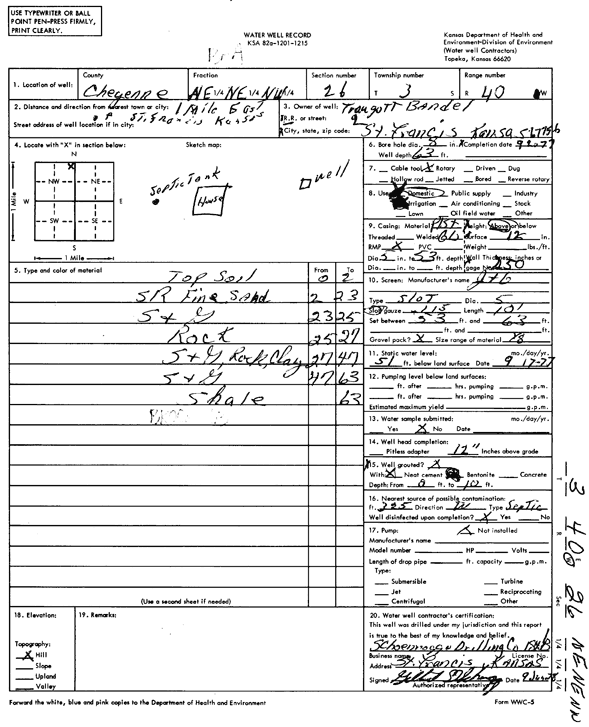 USE TYPEWRITER OR BALL
POINT PEN-PRESS FIRMLY,
PRINT CLEARLY.
WATER WELL RECORD
KSA 82a-1201-1215
Kansas Department of Health and
Environment-Division of Environment
(Water well Contractors)
Topeka, Kansas 66620
1. Location of well:
County
Cheyenne
Fraction
NE 1/4 NE 1/4 NW 1/4
Section number
26
Township number
T 3 S
Range number
R 40 W
2. Distance and direction from nearest town or city: 1 Mile East
of St. Francis Kansas
Street address of well location if in city:
3. Owner of well: Traugott Bandel
R.R. or street:
City, state, zip code: St. Francis Kansas
4. Locate with "X" in section below:
Sketch map:
N
X
NW NE
W E
SW SE
S
1 Mile
1 Mile
Septic Tank
House
well
6. Bore hole dia. 8 in. Completion date
Well depth 63 ft.
7. Cable tool X Rotary Driven Dug
Hollow rod Jetted Bored Reverse rotary
8. Use: Domestic Public supply Industry
Irrigation Air conditioning Stock
Lawn Oil field water Other
9. Casing: Material Height: Above or below
Threaded Welded Surface 12 in.
RMP X PVC Weight lbs./ft.
Dia. 5 in. to 53 ft. depth Wall Thickness: inches or
Dia. in. to ft. depth gage No. 250
5. Type and color of material
From To
Top Soil 0 2
SR Fine Sand 2 23
S + G 23 25
Rock 25 27
S + G, Rock, Clay 27 47
S + G 47 63
Shale 63
(Use a second sheet if needed)
10. Screen: Manufacturer's name
Type Slot Dia. 5
Slot/gauze Length 10'
Set between 53 ft. and 63 ft.
ft. and ft.
Gravel pack? X Size range of material
11. Static water level: mo./day/yr.
51 ft. below land surface Date 9 17-77
12. Pumping level below land surfaces:
ft. after hrs. pumping g.p.m.
ft. after hrs. pumping g.p.m.
Estimated maximum yield g.p.m.
13. Water sample submitted: mo./day/yr.
Yes X No Date
14. Well head completion:
Pitless adapter 12" Inches above grade
15. Well grouted? X
With: X Neat cement Bentonite Concrete
Depth: From 0 ft. to 10 ft.
16. Nearest source of possible contamination:
ft. 225 Direction W Type Septic
Well disinfected upon completion? X Yes No
17. Pump: X Not installed
Manufacturer's name
Model number HP Volts
Length of drop pipe ft. capacity g.p.m.
Type:
Submersible Turbine
Jet Reciprocating
Centrifugal Other
18. Elevation:
19. Remarks:
Topography:
X Hill
Slope
Upland
Valley
20. Water well contractor's certification:
This well was drilled under my jurisdiction and this report
is true to the best of my knowledge and belief.
Drilling Co
Business name License No.
Address St. Francis, Kansas
Signed Date
Authorized representative
Forward the white, blue and pink copies to the Department of Health and Environment
Form WWC-5
T 3 R 40 Sec 26 1/4 1/4 1/4 NE NE NW